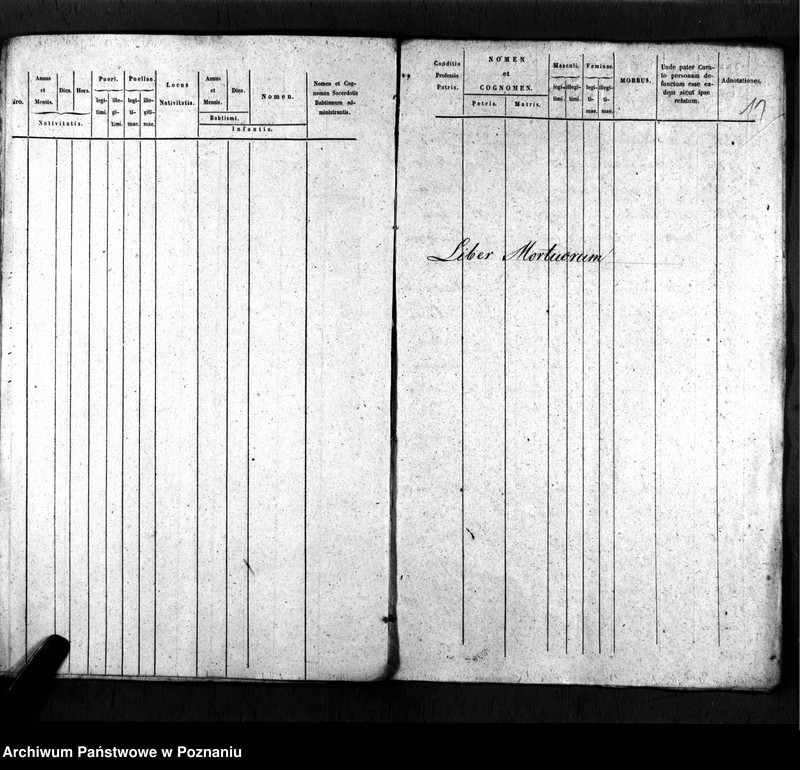 Nro.
Annus
et
Mensis.
Dies.
Hora.
Nativitatis.
Pueri.
legi-
timi.
ille-
gi-
timi.
Puellae.
legi-
ti-
mae.
ille-
giti-
mae.
Locus
Nativitatis.
Annus
et
Mensis.
Dies.
Babtismi.
Nomen.
Infantis.
Nomen et Cog-
nomen Sacerdotis
Babtismum ad-
ministrantis.
Conditio
Professio
Patris.
NOMEN
et
COGNOMEN.
Patris.
Matris.
Masculi.
legi-
timi.
illegi-
timi.
Feminae.
legi-
ti-
mae.
illegi-
ti-
mae.
MORBUS.
Unde pater Cura-
to personam de-
functam esse ea-
dem sicut ipse
relatum.
Adnotationes.
17
Liber Mortuorum
Archiwum Państwowe w Poznaniu